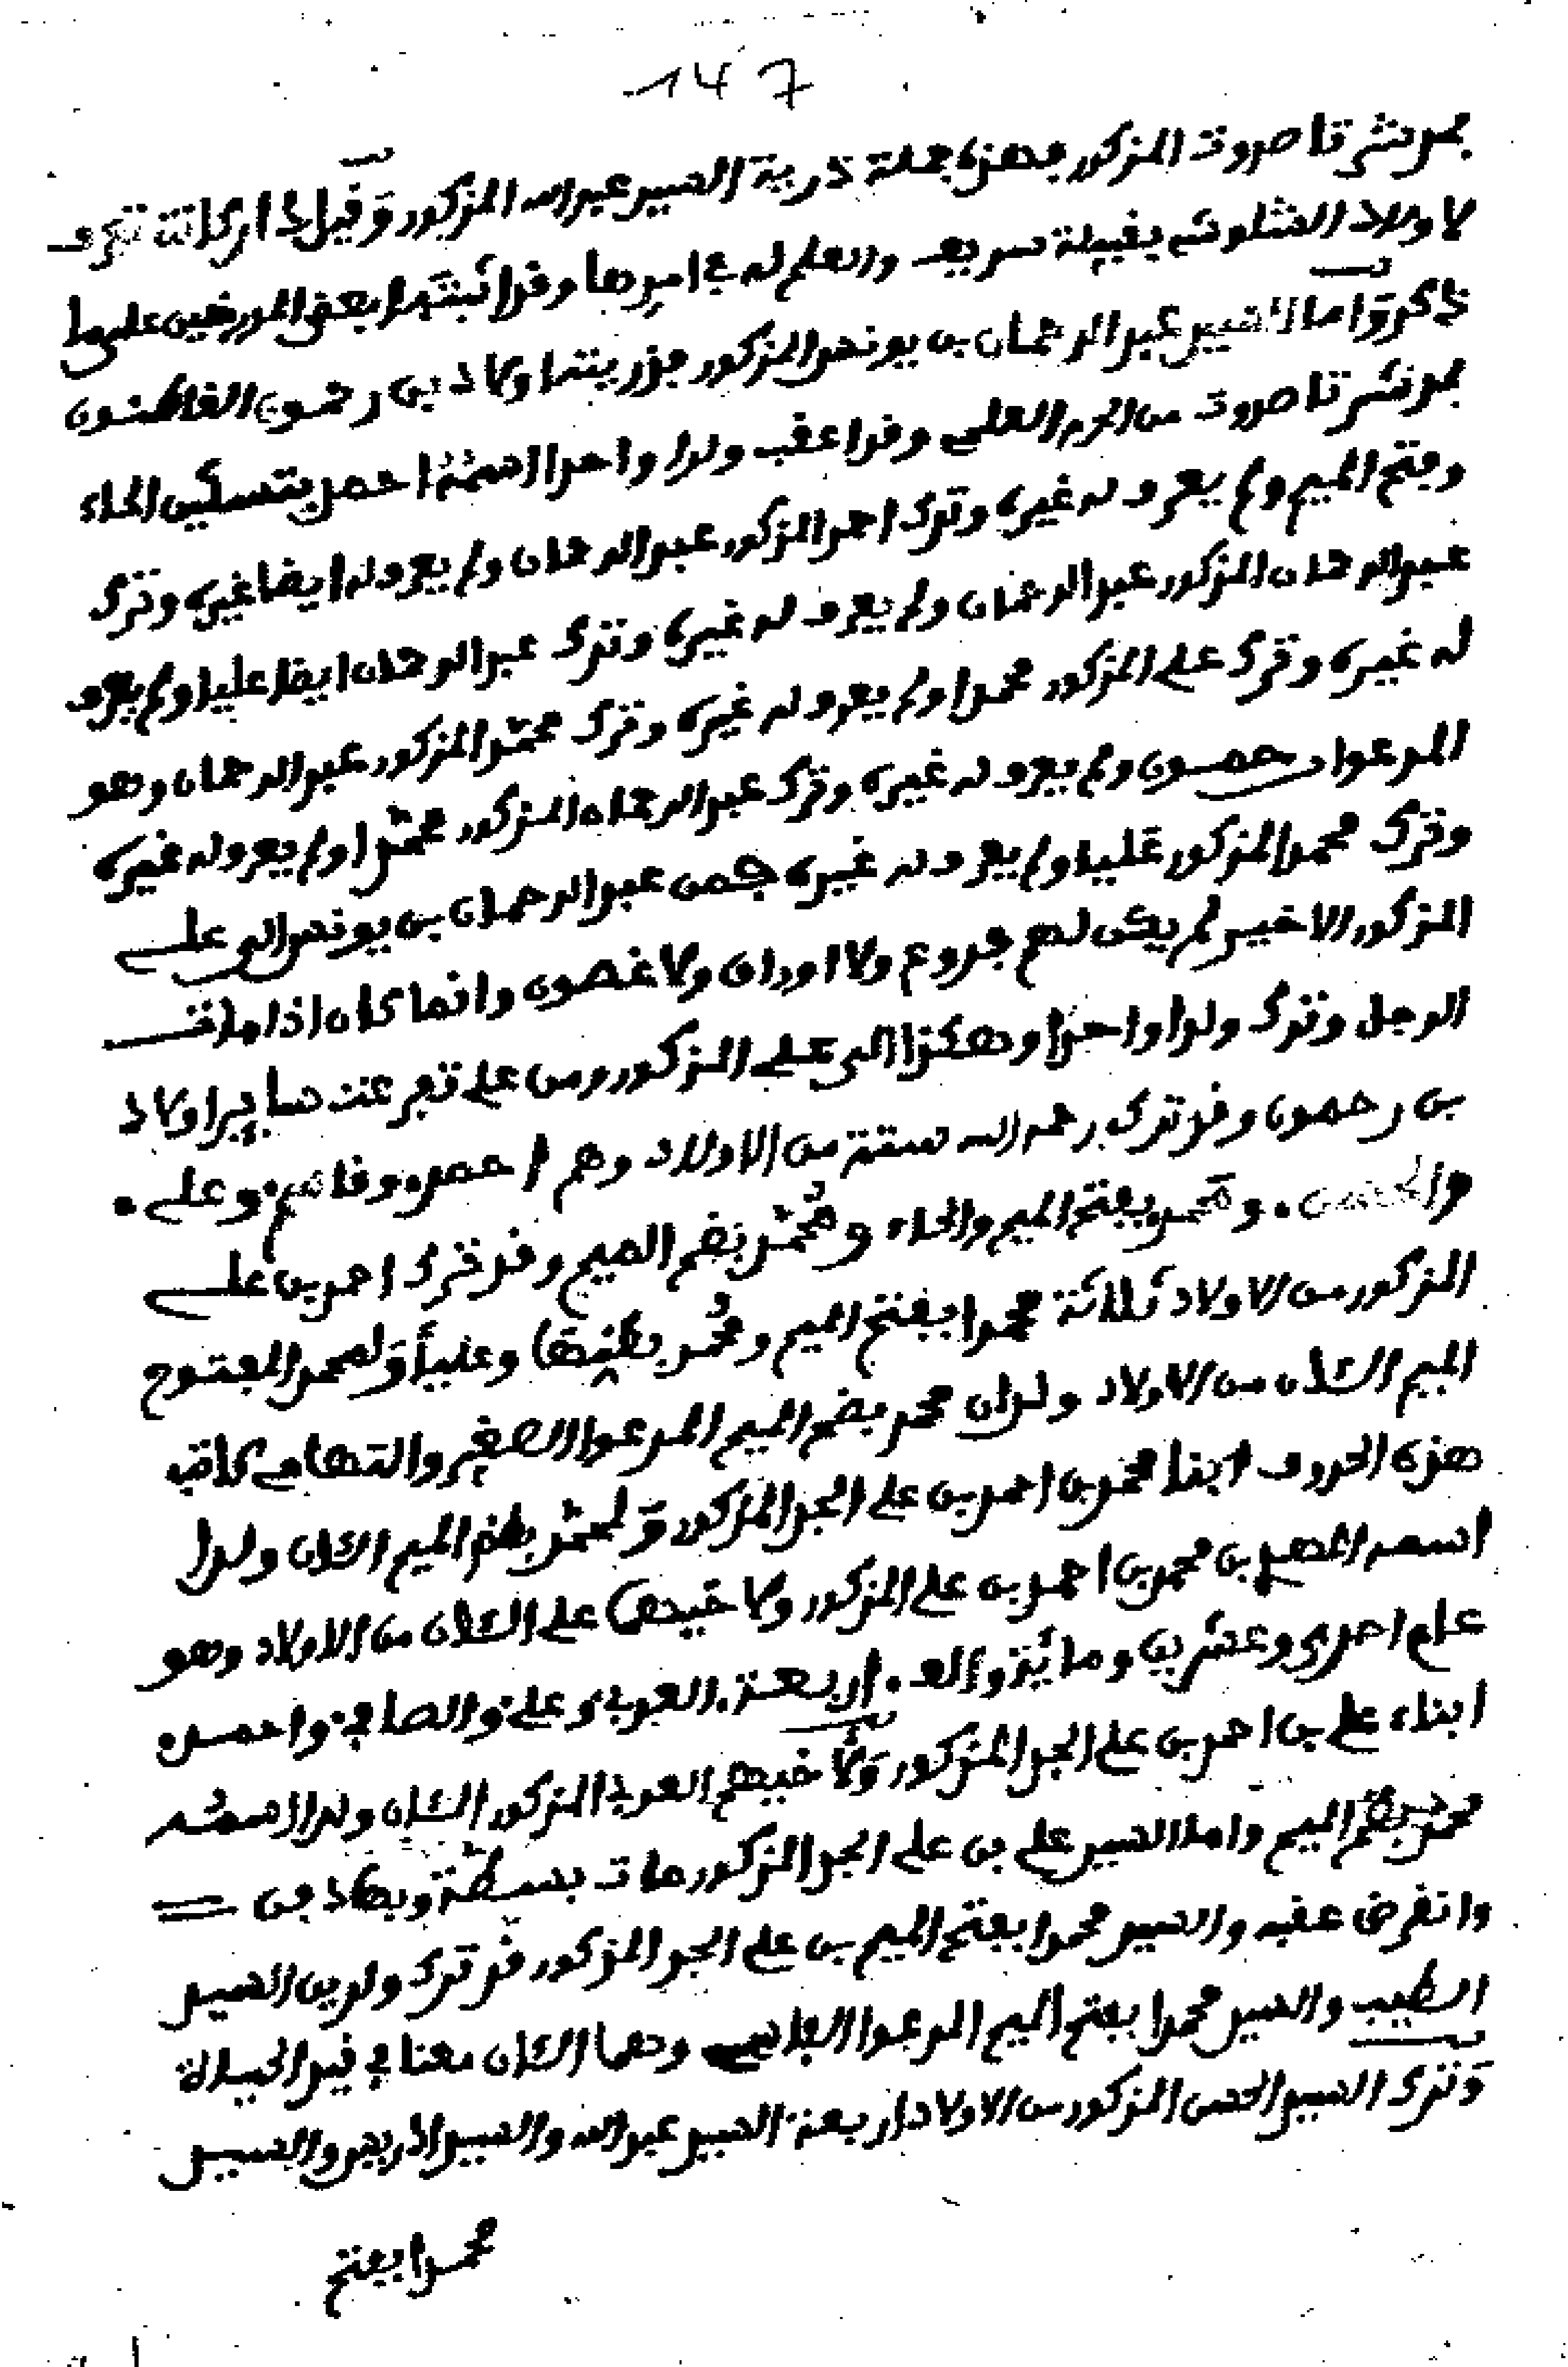 147
بمدشر تاصروت المذكور فهذه جملة ذرية السيد عبد الله المذكور وقيل
لاولاد الشلوشي بقبيلة سريف والعلم لله في امرها وقد اثبتها بعض المورخين على ما
ذكر واما السيد عبد الرحمان بن يونس المذكور فذريته اولاد بن رحمون القاطنون
بمدشر تاصروت من الحرم العلمي وقد اعقب ولدا واحدا اسمه احمد بتسكين الحاء
وفتح الميم ولم يعرف له غيره وترك احمد المذكور عبد الرحمان ولم يعرف له ايضا غيره وترك
عبد الرحمان المذكور عبد الرحمان ولم يعرف له غيره وترك عبد الرحمان ايضا عليا ولم يعرف
له غيره وترك علي المذكور محمدا ولم يعرف له غيره وترك محمد المذكور عبد الرحمان وهو
المدعو رحمون ولم يعرف له غيره وترك عبد الرحمان المذكور محمدا ولم يعرف له غيره
وترك محمد المذكور عليا ولم يعرف له غيره فمن عبد الرحمان بن يونس الى علي
المذكور الاخير لم يكن لهم فروع ولا اوراق ولا غصون وانما كان اذا مات
الرجل وترك ولدا واحدا وهكذا الى علي المذكور ومن علي تفرعت ساير اولاد
بن رحمون وقد ترك رحمه الله ستة من الاولاد وهم احمد. وقاسم. وعلي.
والحسن. ومحمد بفتح الميم والحاء ومحمد بضم الميم وقد ترك احمد بن علي
المذكور من الاولاد ثلاثة محمدا بفتح الميم ومحمد بضمها وعليا ولمحمد المفتوح
الميم الان من الاولاد ولدان محمد بضم الميم المدعو الصغير والتهامي كاتب
هذه الحروف ابنا محمد بن احمد بن علي الجد المذكور ولمحمد بضم الميم الان ولدا
اسمه بن محمد بن احمد بن علي المذكور ولاخيهما علي الان من الاولاد وهو
عام احدى وعشرين ومائة والف. اربعة. العربي وعلي والصافي واحمد.
ابناء علي بن احمد بن علي الجد المذكور ولاخيهم العربي المذكور الان ولدا اسمه
محمد بضم الميم واما السيد علي بن علي الجد المذكور مات
وانقرض عقبه والسيد محمدا بفتح الميم بن علي الجد المذكور قد ترك ولدين السيد
الطيب والسيد محمدا بفتح الميم المدعو وهما الان معنا في قيد الحياة
وترك السيد الحسن المذكور من الاولاد اربعة السيد عبد الله والسيد ادريس والسيد
محمدا بفتح